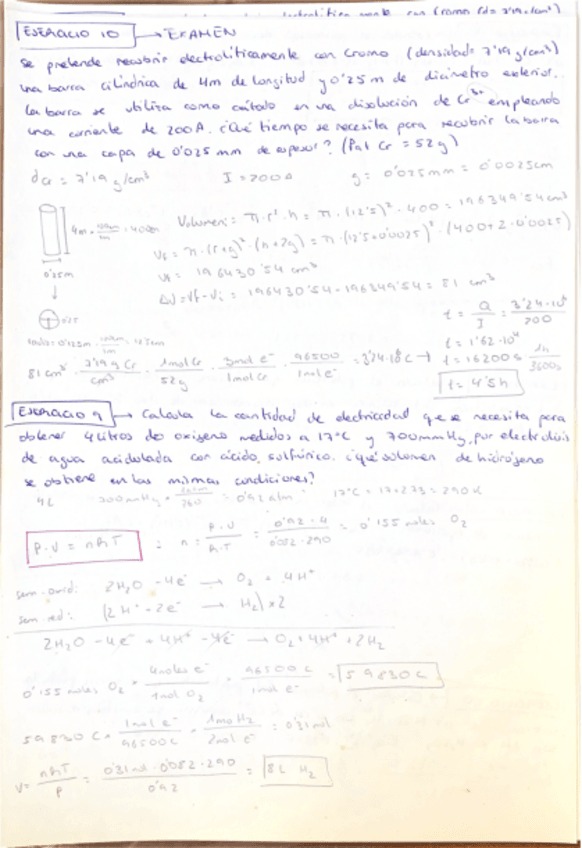 electrolíticamente con Cromo (d = 7'19 g/cm³)
EJERCICIO 10 → EXAMEN
Se pretende recubrir electrolíticamente con Cromo (densidad = 7'19 g/cm³)
una barra cilíndrica de 4m de longitud y 0'25 m de diámetro exterior.
La barra se utiliza como cátodo en una disolución de Cr³⁺ empleando
una corriente de 200A. ¿Qué tiempo se necesita para recubrir la barra
con una capa de 0'025 mm de espesor? (Pat Cr = 52g)
dCr = 7'19 g/cm³ I = 200A g = 0'025mm = 0'0025cm
Volumen i = π·r²·h = π·(12'5)²·400 = 196349'54cm³
4m · 100cm/1m = 400cm
Vf = π·(r+g)²·(h+2g) = π·(12'5+0'0025)²·(400+2·0'0025)
0'25m
Vf = 196430'54 cm³
ΔV = Vf - Vi = 196430'54 - 196349'54 = 81 cm³
t = Q/I = 3'24·10⁶/200
t = 1'62·10⁴
81 cm³ · 7'19 g Cr/cm³ · 1mol Cr/52g · 3mol e⁻/1mol Cr · 96500/1mol e⁻ = 3'24·10⁶ C → t = 16200s 1h/3600s
t = 4'5h
EJERCICIO 9 → Calcula la cantidad de electricidad que se necesita para
obtener 4 litros de oxígeno medidos a 17°C y 700mmHg, por electrolisis
de agua acidulada con ácido sulfúrico. ¿Qué volumen de hidrógeno
se obtiene en las mismas condiciones?
4L 700mmHg · 1atm/760 = 0'92 atm 17°C = 17+273 = 290K
P·V = nRT : n = P·V/R·T = 0'92·4/0'082·290 = 0'155 moles O₂
sem. oxid: 2H₂O - 4e⁻ → O₂ + 4H⁺
sem. red: (2H⁺ + 2e⁻ → H₂) x2
2H₂O - 4e⁻ + 4H⁺ + 4e⁻ → O₂ + 4H⁺ + 2H₂
0'155 moles O₂ · 4moles e⁻/1mol O₂ · 96500 C/1mol e⁻ = 59830C
59830 C · 1mol e⁻/96500C · 1mol H₂/2mol e⁻ = 0'31 mol
V = nRT/P = 0'31·0'082·290/0'92 = 8L H₂